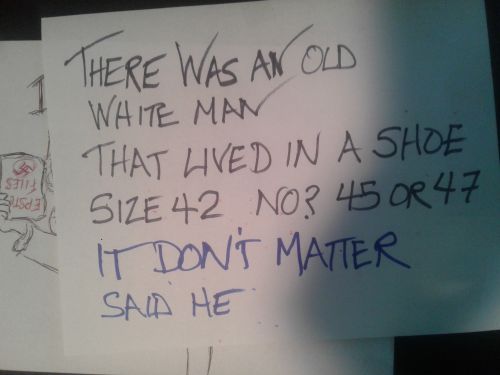 THERE WAS AN OLD
WHITE MAN
THAT LIVED IN A SHOE
SIZE 42 NO? 45 OR 47
IT DON'T MATTER
SAID HE
EPSTE
FILES